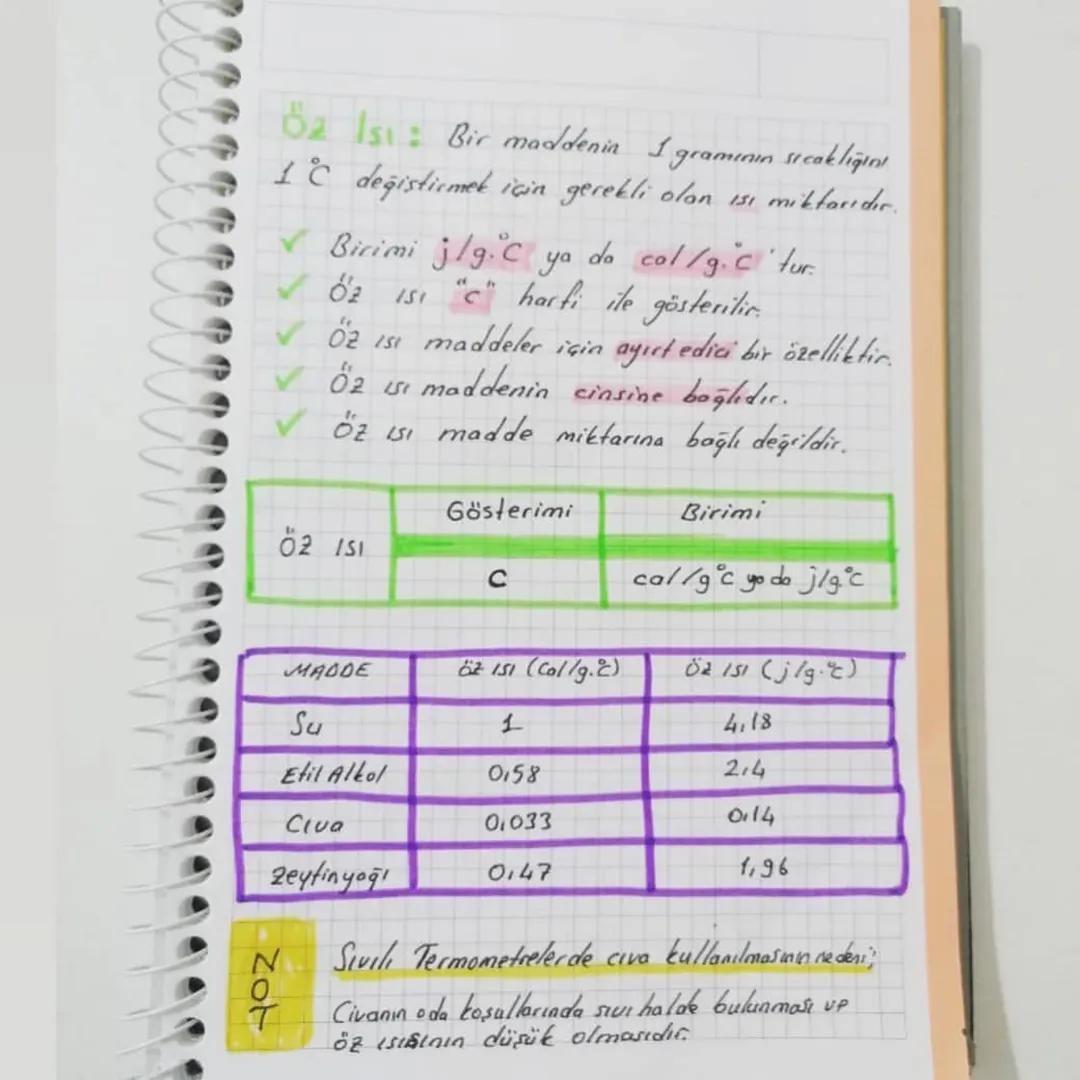 Öz Isı: Bir maddenin 1 gramının sıcaklığını
1 °C değiştirmek için gerekli olan ısı miktarıdır.
✓ Birimi j/g.°C ya da cal/g.°C'tur.
✓ Öz ısı "c" harfi ile gösterilir.
✓ Öz ısı maddeler için ayırt edici bir özelliktir.
✓ Öz ısı maddenin cinsine bağlıdır.
✓ Öz ısı madde miktarına bağlı değildir.
ÖZ ISI Gösterimi Birimi
C cal/g°C ya da j/g°C
MADDE ÖZ ISI (Cal/g.°C) ÖZ ISI (j/g.°C)
Su 1 4,18
Etil Alkol 0,58 2,4
Cıva 0,033 0,14
Zeytinyağı 0,47 1,96
NOT
Sıvılı Termometrelerde cıva kullanılmasının nedeni;
Civanın oda koşullarında sıvı halde bulunması ve
öz ısısının düşük olmasıdır.